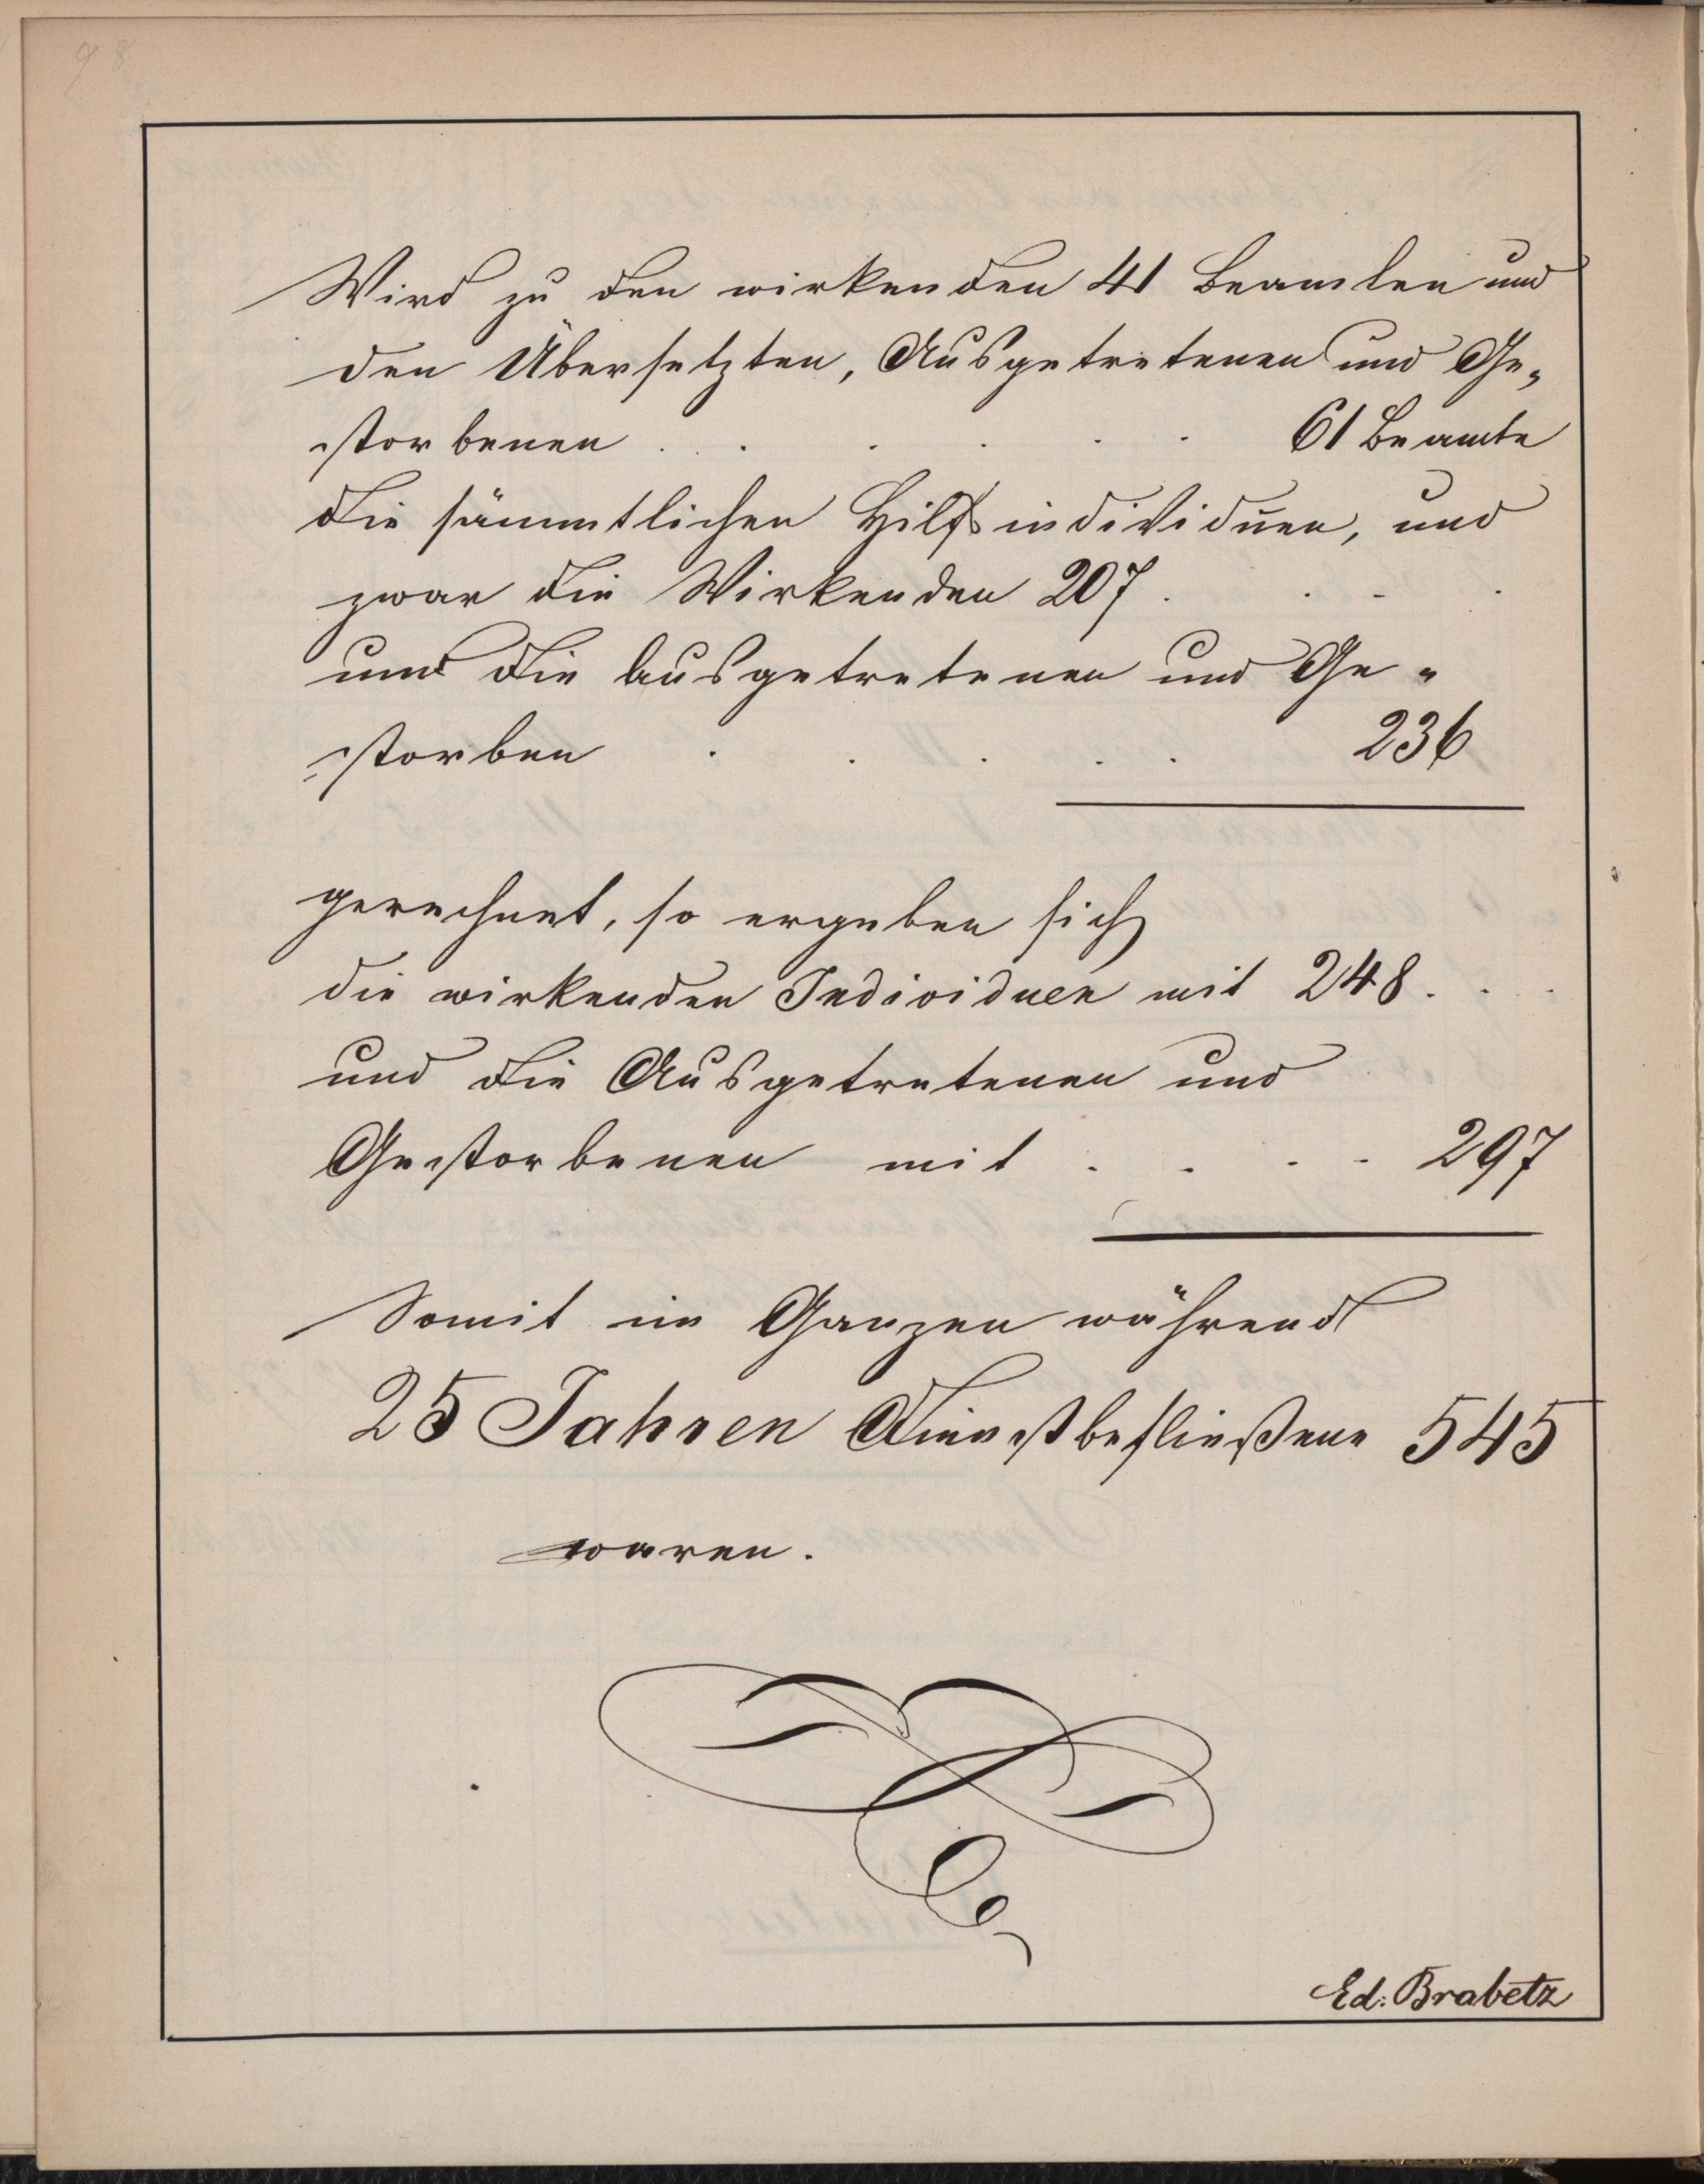 98
Wird zu den wirkenden 41 Beamten und
den Übersetzten, Ausgetretenen und Ge„
storbenen . . . . . . 61 Beamte
die sämmtlichen Hilfsindividuen, und
zwar die Wirkenden 207 . . . .
und die ausgetretenen und Ge „
storben . . . . . 236
gerechnet, so ergeben sich
die wirkenden Individuen mit 248 . . .
und die Ausgetretenen und
Gestorbenen mit . . . . 297
Somit im Ganzen während
25 Jahren Dienstbefließene 545
waren.
Ed: Brabetz